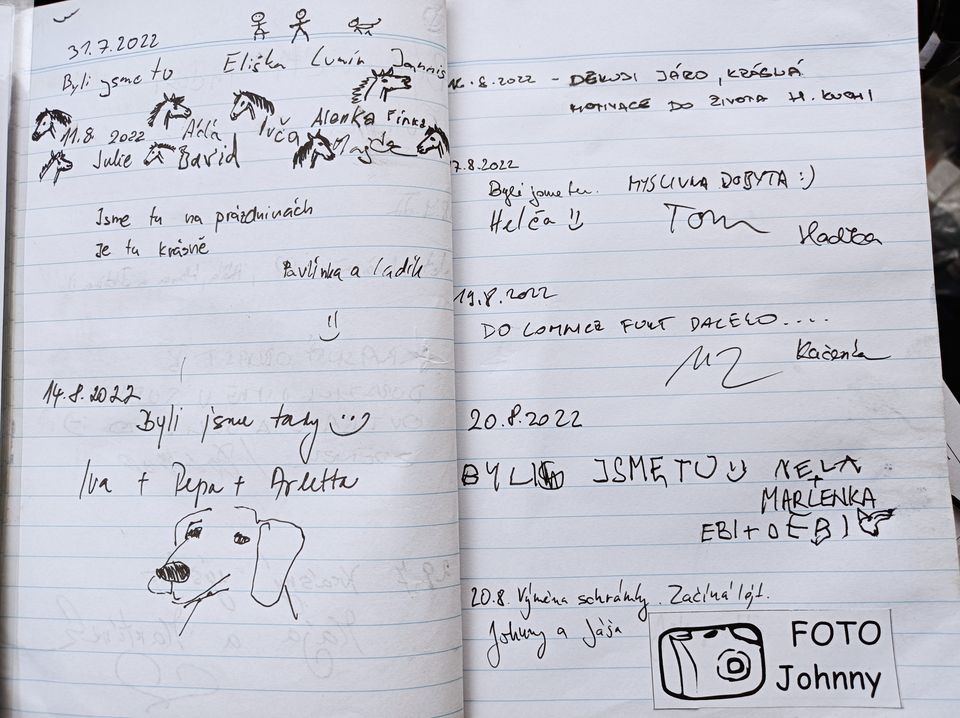 31.7.2022
Byli jsme tu Eliška Jannis
11.8. 2022 Áďa Ivča Alenka
Julie David Magda
Jsme tu na prázdninách
Je tu krásně
Pavlínka a Ladík
14.8.2022
Byli jsme tady
Iva + Pepa + Arletta
16.8.2022 - DĚKUJI JÁRO, KRÁSNÁ
MOTIVACE DO ŽIVOTA H.
7.8.2022
Byli jsme tu. MYSLIVNA DOBYTA :)
Helča :) Tom
19.8.2022
DO LOMNICE FURT DALEKO....
Kačenka
20.8.2022
BYLI JSME TU NELA
+
MARLENKA
EBI + DEBI
20.8. Výměna schránky. Začíná lýt.
Johnny a Jája
FOTO
Johnny